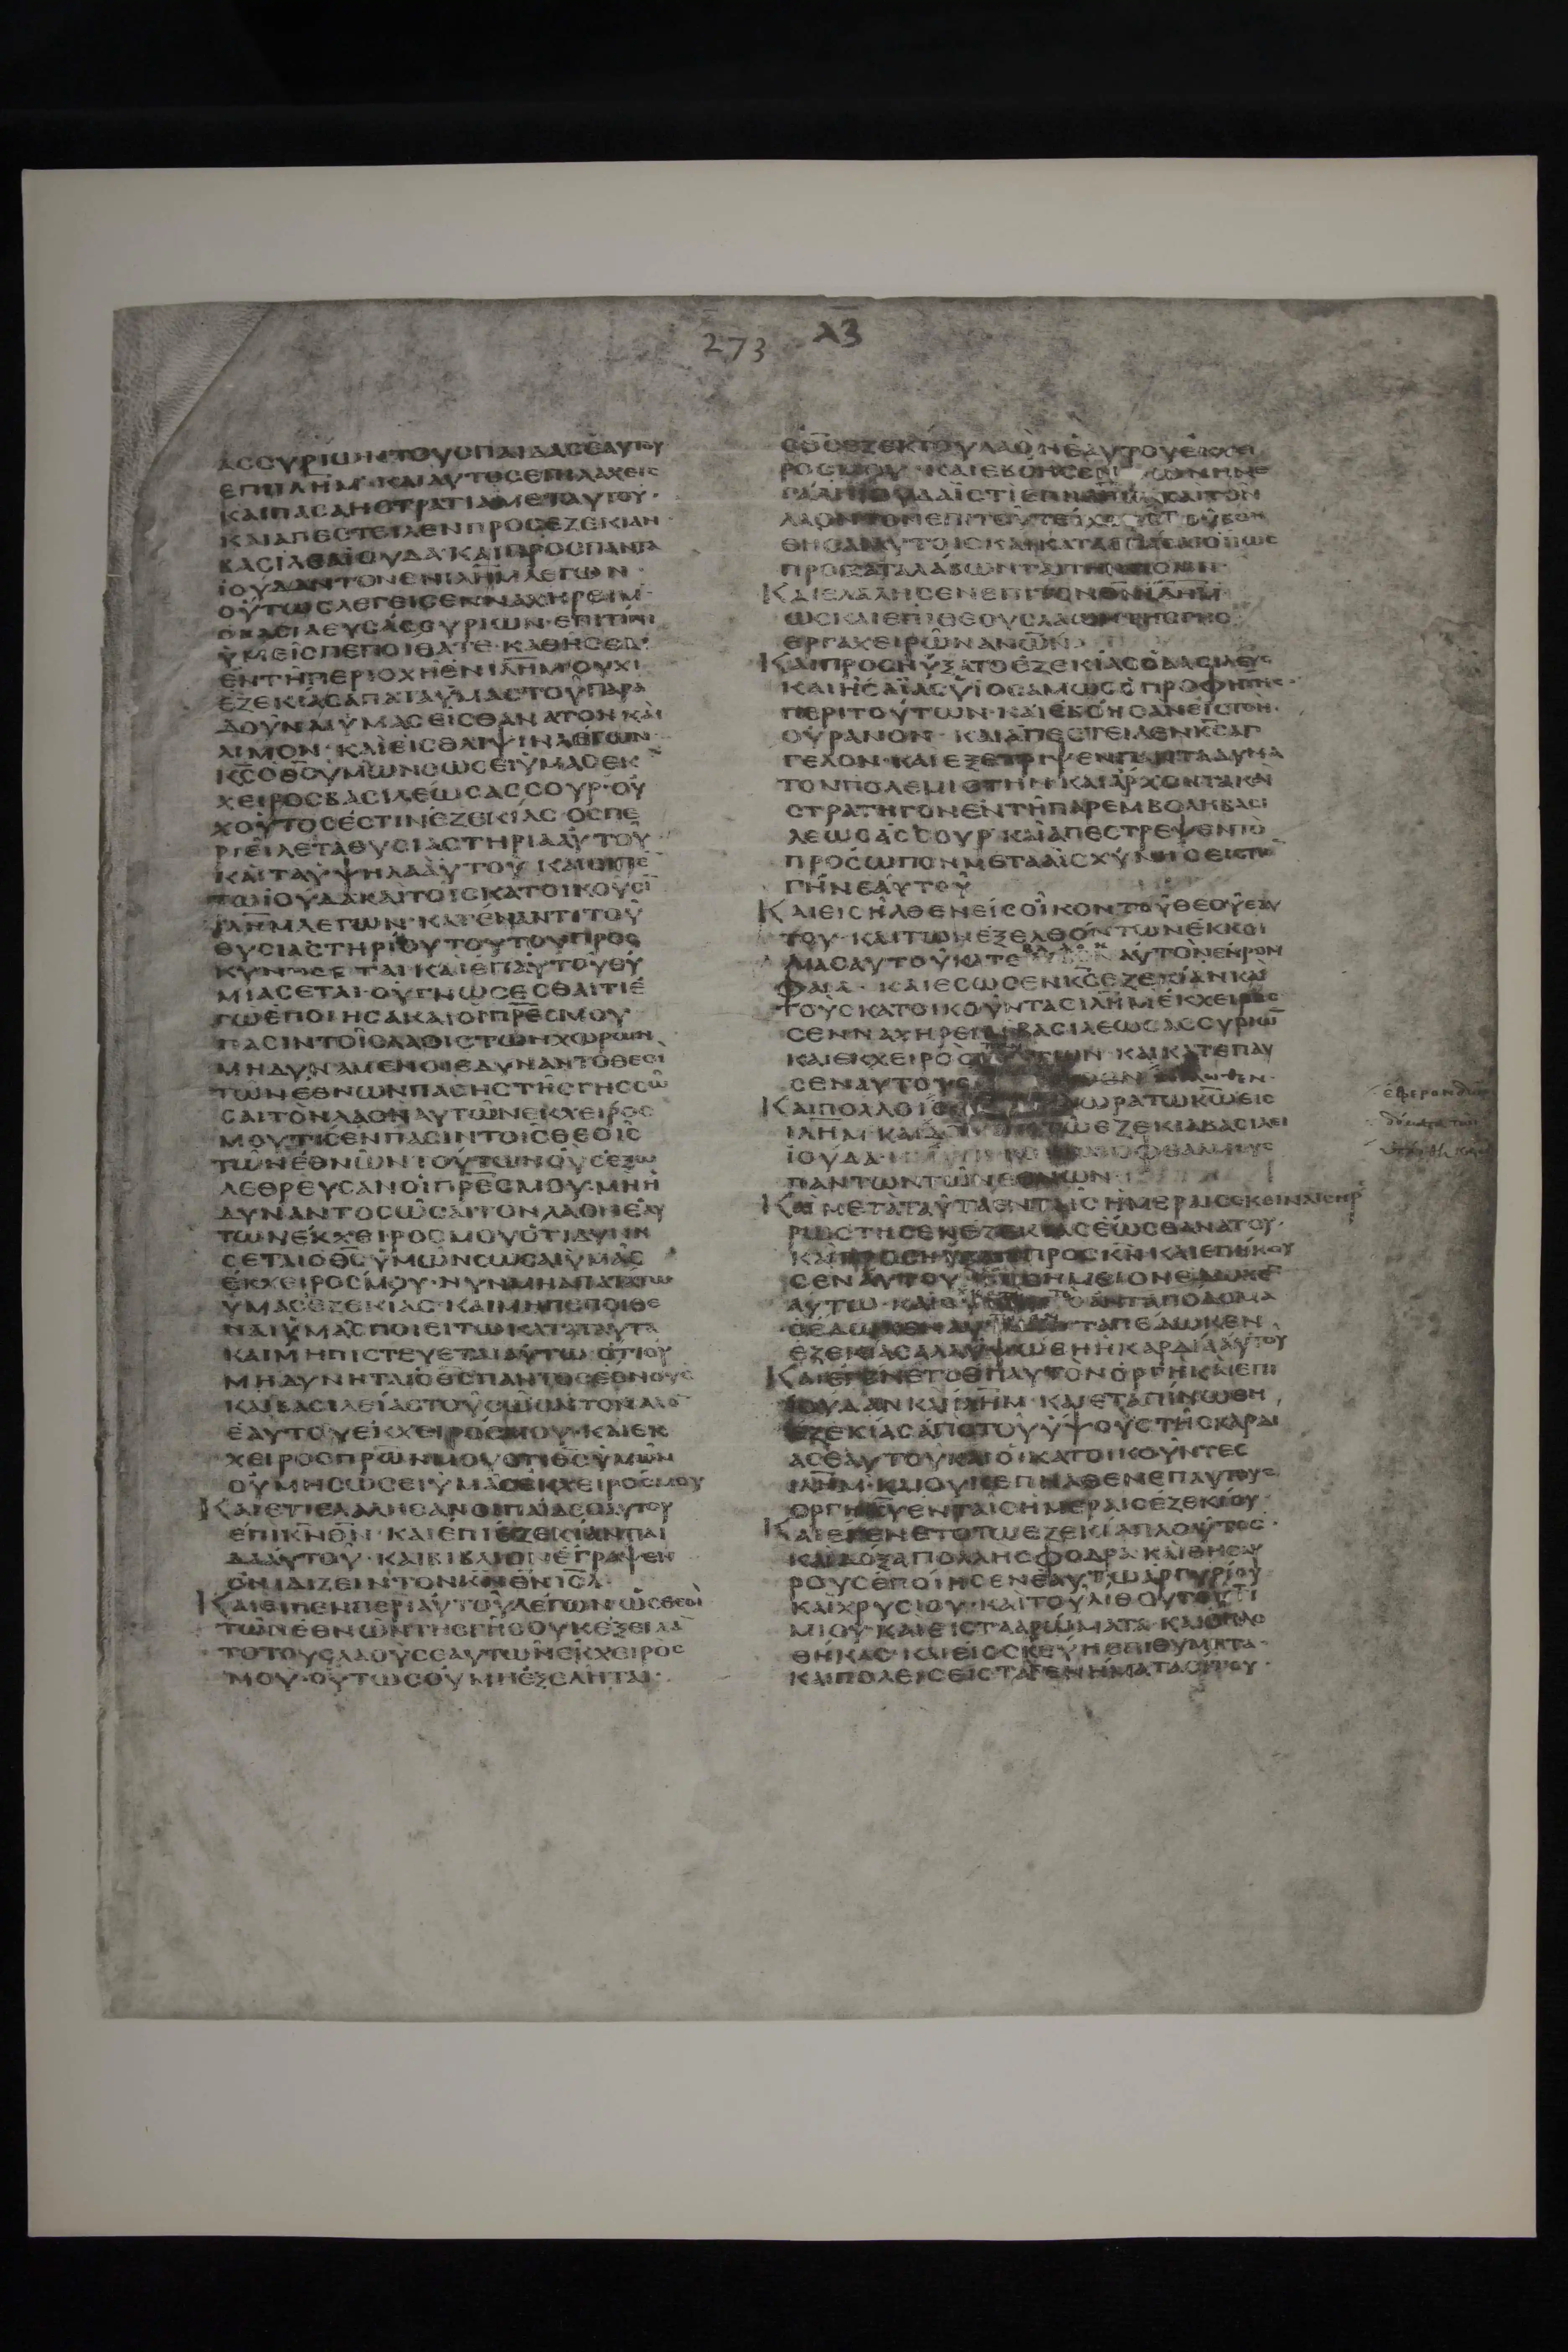 273 λ3
ΑССΥΡΙωΝΤΟΥСΠΑΙΔΑСЄΑΥΤΟΥ
ЄΠΙΙΛΗΜ·ΚΑΙΑΥΤΟС
ΚΑΙΠΑСΑΗСΤΡΑΤΙΑΜЄΤΑΥΤΟΥ·
ΚΑΙΑΠЄСΤЄΙΛЄΝΠΡΟСЄΖЄΚΙΑΝ
ΒΑСΙΛЄΑΙΟΥΔΑ·ΚΑΙΠΡΟСΠΑΝΤΑ
ΙΟΥΔΑΝΤΟΝЄΝΙΛΗΜΛЄΓωΝ·
ΟΥΤωСΛЄΓЄΙСЄΝΝΑΧΗΡЄΙΜ
ΟΒΑСΙΛЄΥСΑССΥΡΙωΝ·ЄΠΙΤΙΝΙ
ΥΜЄΙСΠЄΠΟΙΘΑΤЄ·ΚΑΘΗСЄСΘЄ
ЄΝΤΗΠЄΡΙΟΧΗЄΝΙΛΗΜ·ΟΥΧΙ
ЄΖЄΚΙΑСΑΠΑΤΑΥΜΑСΤΟΥΠΑΡΑ
ΔΟΥΝΑΙΥΜΑСЄΙСΘΑΝΑΤΟΝΚΑΙ
ΛΙΜΟΝ·ΚΑΙЄΙСΘΛΙΨΙΝΛЄΓωΝ
ΚСΟΘСΥΜωΝСωСЄΙΥΜΑСЄΚ
ΧЄΙΡΟСΒΑСΙΛЄωСΑССΟΥΡ·ΟΥ
ΧΟΥΤΟСЄСΤΙΝЄΖЄΚΙΑС·ΟСΠЄ
ΡΙЄΙΛЄΤΑΘΥСΙΑСΤΗΡΙΑΑΥΤΟΥ
ΚΑΙΤΑΥΨΗΛΑΑΥΤΟΥ·ΚΑΙЄΙΠЄ
ΤωΙΟΥΔΑΚΑΙΤΟΙСΚΑΤΟΙΚΟΥСΙ
ΙΛΗΜΛЄΓωΝ·ΚΑΤЄΝΑΝΤΙΤΟΥ
ΘΥСΙΑСΤΗΡΙΟΥΤΟΥΤΟΥΠΡΟС
ΚΥΝΗСЄΤΑΙ·ΚΑΙЄΠΑΥΤΟΥΘΥ
ΜΙΑСЄΤΑΙ·ΟΥΓΝωСЄСΘΑΙΤΙЄ
ΓωЄΠΟΙΗСΑΚΑΙΟΙΠΡЄСΜΟΥ
ΠΑСΙΝΤΟΙСΛΑΟΙСΤωΝΧωΡωΝ
ΜΗΔΥΝΑΜЄΝΟΙЄΔΥΝΑΝΤΟΘЄΟΙ
ΤωΝЄΘΝωΝΠΑСΗСΤΗСΓΗССω
СΑΙΤΟΝΛΑΟΝΑΥΤωΝЄΚΧЄΙΡΟС
ΜΟΥΤΙСЄΝΠΑСΙΝΤΟΙСΘЄΟΙС
ΤωΝЄΘΝωΝΤΟΥΤωΝΟΥСЄΞω
ΛЄΘΡЄΥСΑΝΟΙΠΡЄСΜΟΥ·ΜΗΗ
ΔΥΝΑΝΤΟСωСΑΙΤΟΝΛΑΟΝЄΑΥ
ΤωΝЄΚΧЄΙΡΟСΜΟΥΟΤΙΔΥΝΗ
СЄΤΑΙΟΘСΥΜωΝСωСΑΙΥΜΑС
ЄΚΧЄΙΡΟСΜΟΥ·ΝΥΝΜΗΑΠΑΤΑΤω
ΥΜΑСЄΖЄΚΙΑС·ΚΑΙΜΗΠЄΠΟΙΘЄ
ΝΑΙΥΜΑСΠΟΙЄΙΤωΚΑΤΑΤΑΥΤΑ
ΚΑΙΜΗΠΙСΤЄΥЄΤΑΙΑΥΤω·ΟΤΙΟΥ
ΜΗΔΥΝΗΤΑΙΟΘСΠΑΝΤΟСЄΘΝΟΥС
ΚΑΙΒΑСΙΛЄΙΑСΤΟΥСωСΑΙΤΟΝΛΑΟ
ЄΑΥΤΟΥЄΚΧЄΙΡΟСΜΟΥ·ΚΑΙЄΚ
ΧЄΙΡΟСΠΡωΝΜΟΥΟΤΙΘСΥΜωΝ
ΟΥΜΗСωСЄΙΥΜΑСЄΚΧЄΙΡΟСΜΟΥ
ΚΑΙЄΤΙЄΛΑΛΗСΑΝΟΙΠΑΙΔЄСΑΥΤΟΥ
ЄΠΙΚΝΘΝ·ΚΑΙЄΠΙЄΖЄΚΙΑΝΠΑΙ
ΔΑΑΥΤΟΥ·ΚΑΙΒΙΒΛΙΟΝЄΓΡΑΨЄΝ
ΟΝΙΔΙΖЄΙΝΤΟΝΚΝΘΝΙСΛ·
ΚΑΙЄΙΠЄΝΠЄΡΙΑΥΤΟΥΛЄΓωΝ·ωСΘЄΟΙ
ΤωΝЄΘΝωΝΤΗСΓΗСΟΥΚЄΞЄΙΛΑ
ΤΟΤΟΥСΛΑΟΥСЄΑΥΤωΝЄΚΧЄΙΡΟС
ΜΟΥ·ΟΥΤωСΟΥΜΗЄΞЄΛΗΤΑΙ·
ΟΘСЄΖЄΚΙΟΥΛΑΟΝЄΑΥΤΟΥЄΚΧЄΙ
ΡΟСΜΟΥ·ΚΑΙЄΒΟΗСЄΝ
ΛΑΟΝΤΟΝЄΠΙΤΟΥΤЄΙΧΟΥС
ΘΗСΑΙΑΥΤΟΙС
ΠΡΟΚΑΤΑΛΑΒωΝΤΑΙΤΗΝΠΟΛΙΝ·
ΚΑΙЄΛΑΛΗСЄΝЄΠΙΤΟΝΘΝΙΛΗΜ·
ωСΚΑΙЄΠΙΘЄΟΥСΛΑωΝΤΗСΓΗС
ЄΡΓΑΧЄΙΡωΝΑΝωΝ
ΚΑΙΠΡΟСΗΥΞΑΤΟЄΖЄΚΙΑСΟΒΑСΙΛЄΥС
ΚΑΙΗСΑΪΑСΥΙΟСΑΜωСΟΠΡΟΦΗΤΗС·
ΠЄΡΙΤΟΥΤωΝ·ΚΑΙЄΒΟΗСΑΝЄΙСΤΟΝ·
ΟΥΡΑΝΟΝ·ΚΑΙΑΠЄСΤЄΙΛЄΝΚСΑΓ
ΓЄΛΟΝ·ΚΑΙЄΞЄΤΡΙΨЄΝΠΑΝΤΑΔΥΝΑ
ΤΟΝΠΟΛЄΜΙСΤΗΝ·ΚΑΙΑΡΧΟΝΤΑΚΑΙ
СΤΡΑΤΗΓΟΝЄΝΤΗΠΑΡЄΜΒΟΛΗΒΑСΙ
ΛЄωСΑССΟΥΡ·ΚΑΙΑΠЄСΤΡЄΨЄΝΤΟ
ΠΡΟСωΠΟΝΜЄΤΑΑΙСΧΥΝΗСЄΙСΤΗΝ
ΓΗΝЄΑΥΤΟΥ
ΚΑΙЄΙСΗΛΘЄΝЄΙСΟΙΚΟΝΤΟΥΘЄΟΥЄΑΥ
ΤΟΥ·ΚΑΙΤωΝЄΞЄΛΘΟΝΤωΝЄΚΚΟΙ
ΛΙΑСΑΥΤΟΥΚΑΤЄΒΑΛΟΝΑΥΤΟΝЄΝΡΟΜ
ΦΑΙΑ·ΚΑΙЄСωСЄΝΚСЄΖЄΚΙΑΝΚΑΙ
ΤΟΥСΚΑΤΟΙΚΟΥΝΤΑСΙΛΗΜЄΚΧЄΙΡΟС
СЄΝΝΑΧΗΡЄΙΜΒΑСΙΛЄωСΑССΥΡΙω
ΚΑΙЄΚΧЄΙΡΟС ΚΑΙΚΑΤЄΠΑΥ
СЄΝΑΥΤΟΥС
ΚΑΙΠΟΛΛΟΙ ΔωΡΑΤωΚωЄΙС
ΙΛΗΜ·ΚΑΙΔΟΜΑΤΑΤωЄΖЄΚΙΑΒΑСΙΛЄΙ
ΙΟΥΔΑ· ΟΦΘΑΛΜΟΥС
ΠΑΝΤωΝΤωΝЄΘΝωΝ·
ΚΑΙΜЄΤΑΤΑΥΤΑЄΝΤΑΙСΗΜЄΡΑΙСЄΚЄΙΝΑΙСΗΡ
ΡωСΤΗСЄΝЄΖЄΚΙΑСЄωСΘΑΝΑΤΟΥ·
ΚΑΙΠΡΟСΗΥΞΑΤΟΠΡΟСΚΝ·ΚΑΙЄΠΗΚΟΥ
СЄΝΑΥΤΟΥ·ΚΑΙСΗΜЄΙΟΝЄΔωΚЄ
ΑΥΤω·ΚΑΙΟΥ ΑΝΤΑΠΟΔΟΜΑ
ΟЄΔωΚЄΝΑΥΤωΑΝΤΑΠЄΔωΚЄΝ
ЄΖЄΚΙΑСΑΛΛΑΥΨωΘΗΗΚΑΡΔΙΑΑΥΤΟΥ
ΚΑΙЄΓЄΝЄΤΟЄΠΑΥΤΟΝΟΡΓΗ·ΚΑΙЄΠΙ
ΙΟΥΔΑΝΚΑΙΙΛΗΜ·ΚΑΙЄΤΑΠΙΝωΘΗ
ЄΖЄΚΙΑСΑΠΟΤΟΥΥΨΟΥСΤΗСΚΑΡΔΙ
ΑСΑΥΤΟΥΚΑΙΟΙΚΑΤΟΙΚΟΥΝΤЄС
ΙΛΗΜ·ΚΑΙΟΥΚЄΠΗΛΘЄΝЄΠΑΥΤΟΥС
ΟΡΓΗΚΥЄΝΤΑΙСΗΜЄΡΑΙСЄΖЄΚΙΟΥ·
ΚΑΙЄΓЄΝЄΤΟΤωЄΖЄΚΙΑΠΛΟΥΤΟС·
ΚΑΙΔΟΞΑΠΟΛΛΗСΦΟΔΡΑ·ΚΑΙΘΗСΑΥ
ΡΟΥСЄΠΟΙΗСЄΝЄΑΥΤωΑΡΓΥΡΙΟΥ
ΚΑΙΧΡΥСΙΟΥ·ΚΑΙΤΟΥΛΙΘΟΥΤΟΥΤΙ
ΜΙΟΥ·ΚΑΙЄΙСΤΑΑΡωΜΑΤΑ·ΚΑΙΟΠΛΟ
ΘΗΚΑС·ΚΑΙЄΙССΚЄΥΗЄΠΙΘΥΜΗΤΑ·
ΚΑΙΠΟΛЄΙСЄΙСΤΑΓЄΝΗΜΑΤΑСΙΤΟΥ·